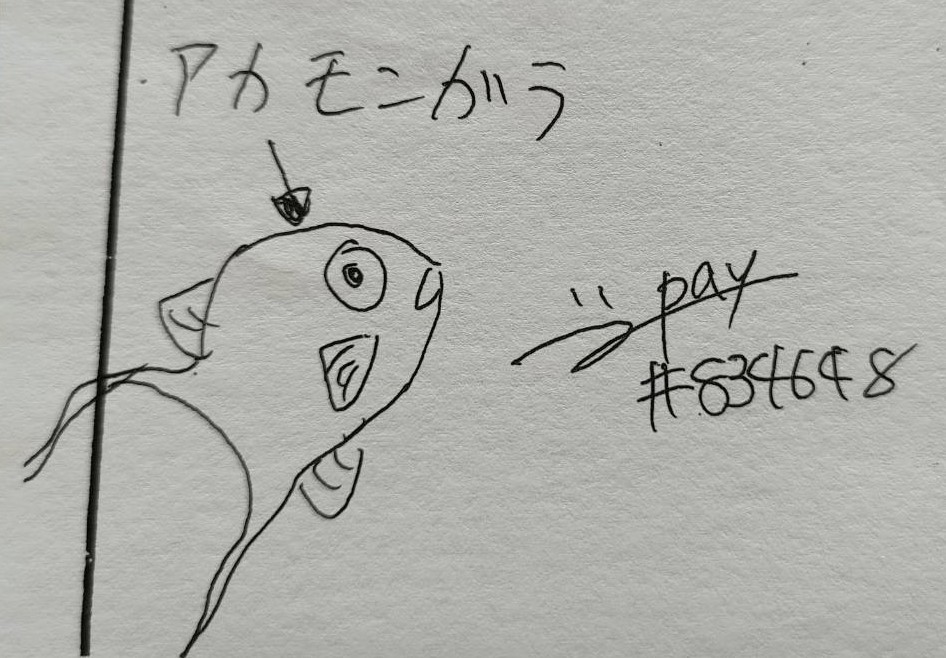 アカモンガラ
pay
#834648